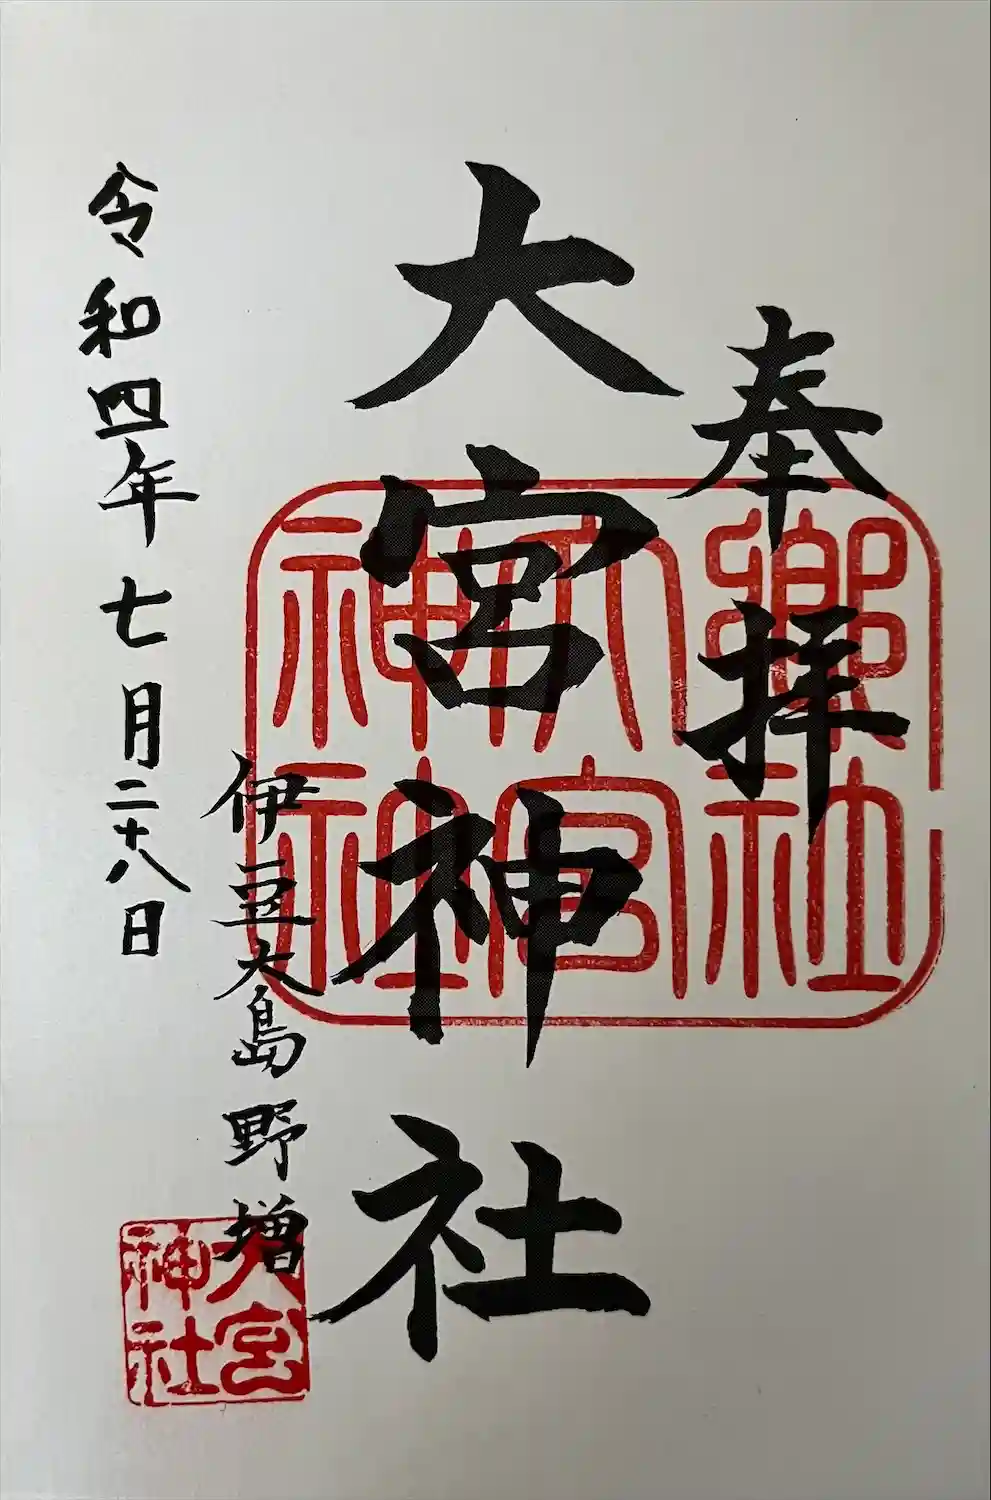 奉拝
郷社
大宮
神社
大宮神社
伊豆大島野増
令和四年七月二十八日
大宮
神社